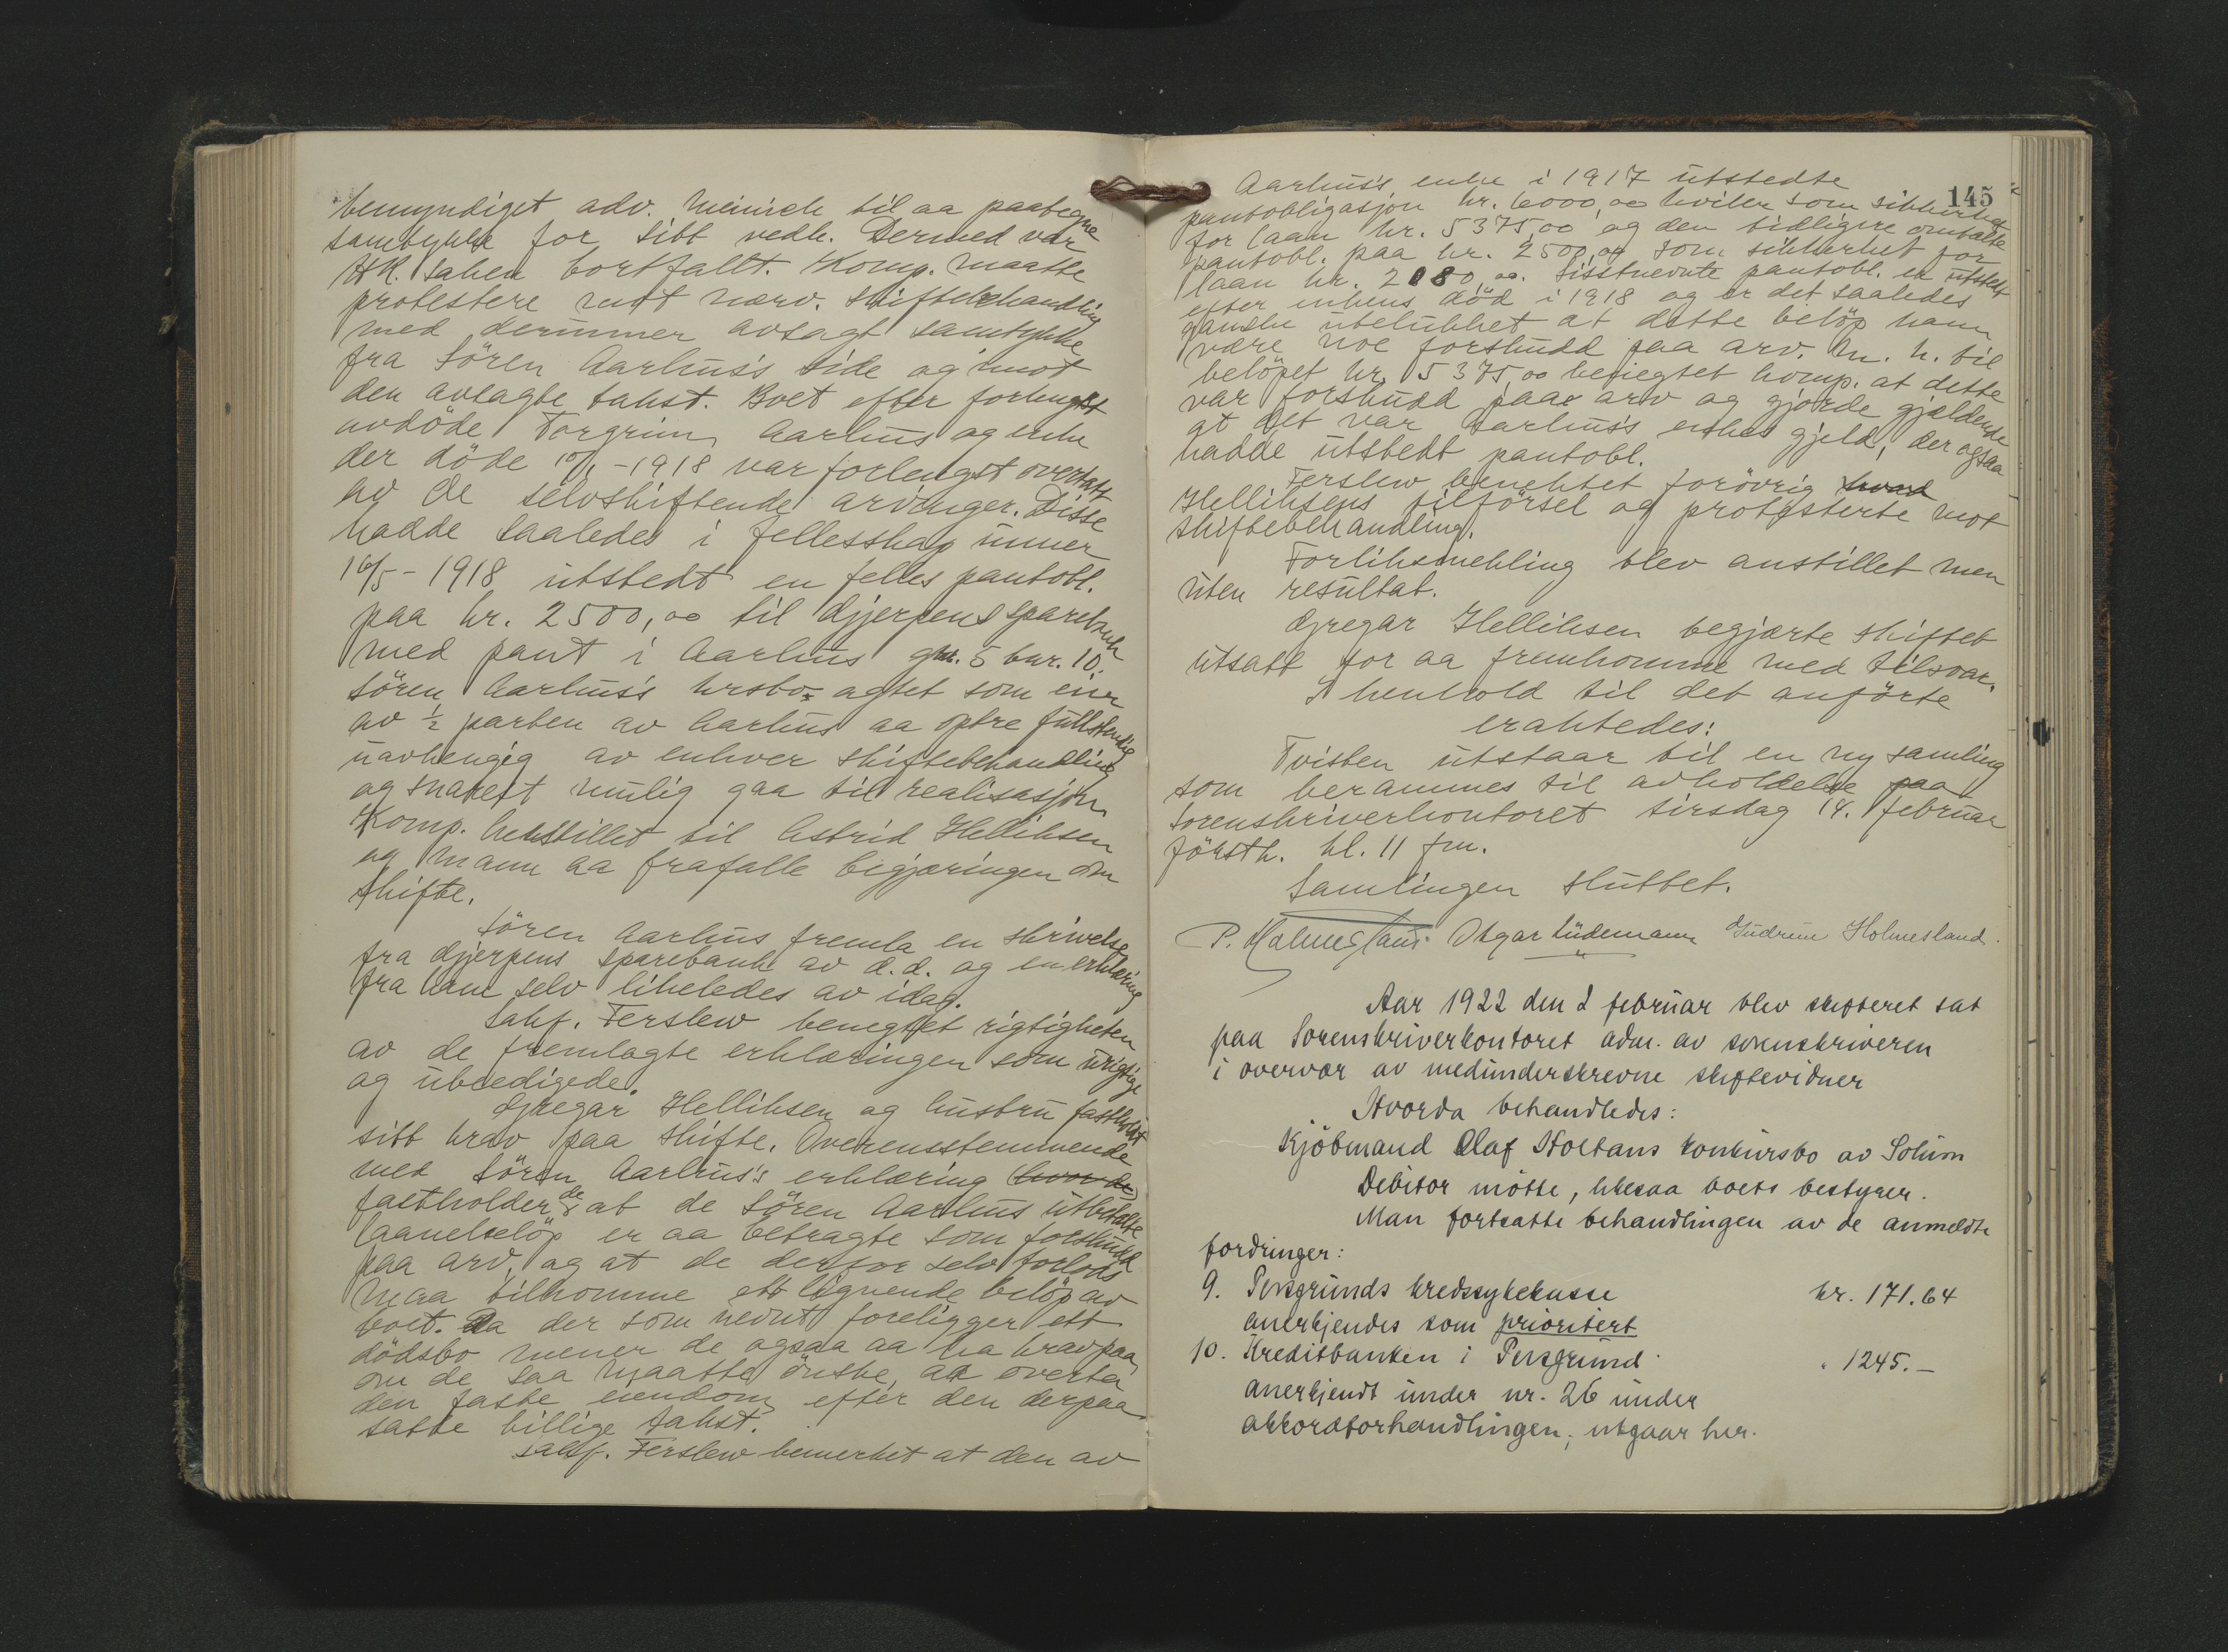 bemyndiget adv. Meinich til aa paategne
samtykke for sitt vedk. Dermed var
HR. saken bortfallt. Komp. maatte
protestere mot nærv. skiftebehandling
med derunner avsagt samtykke
fra Sören Aarhus's side og imot
den avlagte takst. Boet efter forlengst
avdöde Torgrim Aarhus og enke
der döde 10/1 - 1918 var forlengst overtatt
av de selvskiftende arvinger. Disse
hadde saaledes i fellesskap unner
16/5 - 1918 utstedt en felles pantobl.
paa kr. 2500,00 til Gjerpens sparebank
med pant i Aarhus gnr. 5 bnr. 10.
Sören Aarhus's krsbo agtet som eier
av ½ parten av Aarhus aa optre fullstendig
uavhengig av enhver skiftebehandling
og snarest mulig gaa til realisasjon
Komp. henstillet til Astrid Helliksen
og mann aa frafalle begjæringen om
skifte.
Sören Aarhus fremla en skrivelse
fra Gjerpens sparebank av d.d. og en erklæring
fra ham selv likeledes av idag.
Sakf. Ferslew benegtet rigtigheten
av de fremlagte erklæringen som urigtige
og ubeedigede.
Gregar Helliksen og hustru fastholdt
sitt krav paa skifte. Overensstemmende
med Sören Aarhus's erklæring hvor de
fastholder de at de Sören Aarhus utbetalte
laanebelöp er aa betragte som forskudd
paa arv, og at de derfor selv forlods
maa tilkomme ett lignende belöp av
boet. Da der som nevnt foreligger ett
dödsbo mener de ogsaa aa ha krav paa
om de saa maatte önske, aa overta
den faste eiendom efter den derpaa
satte billige takst.
Sakf. Ferslew bemerket at den av
145
Aarhus's enke i 1917 utstedte
pantobligasjon kr. 6000,00 hviler som sikkerhet
for laan kr. 5375,00 og den tidligere omtalte
pantobl. paa kr. 2500,00 som sikkerhet for
laan kr. 2080,00. Sisstnevnte pantobl. er utstedt
efter enkens död i 1918 og er det saaledes
ganske utelukket at dette belöp kann
være noe forskudd paa arv. M. h. til
belöpet kr. 5375,00 benegtet komp. at dette
var forskudd paa arv og gjorde gjældende
at det var Aarhus's enkes gjeld, der ogsaa
hadde utstedt pantobl.
Ferslew benektet forövrig hvad
Helliksens tilförsel og protesterte mot
skiftebehandling.
Forliksmekling blev anstillet men
uten resultat.
Gregar Helliksen begjærte skiftet
utsatt for aa fremkomme med tilsvar.
I henhold til det anförte
eraktedes:
Tvisten utstaar til en ny samling
som berammes til avholdelse paa
Sorenskriverkontoret tirsdag 14. februar
förstk. kl. 11 fm.
Samlingen sluttet.
P. Holmesland. Asgar Lüdemann Gudrun Holmesland.
Aar 1922 den 2 februar blev skifteret sat
paa Sorenskriverkontoret adm. av sorenskriveren
i overvær av medunderskrevne skiftevidner
Hvorda behandledes:
Kjöbmand Olaf Stoltans konkursbo av Solum
Debitor mötte, likesaa boets bestyrer.
Man fortsatte behandlingen av de anmeldte
fordringer:
9. Porsgrunds kredssykekasse kr. 171.64
anerkjendes som prioritert
10. Kreditbanken i Porsgrund " 1245.-
anerkjendt under nr. 26 under
akkordforhandlingen; utgaar her.